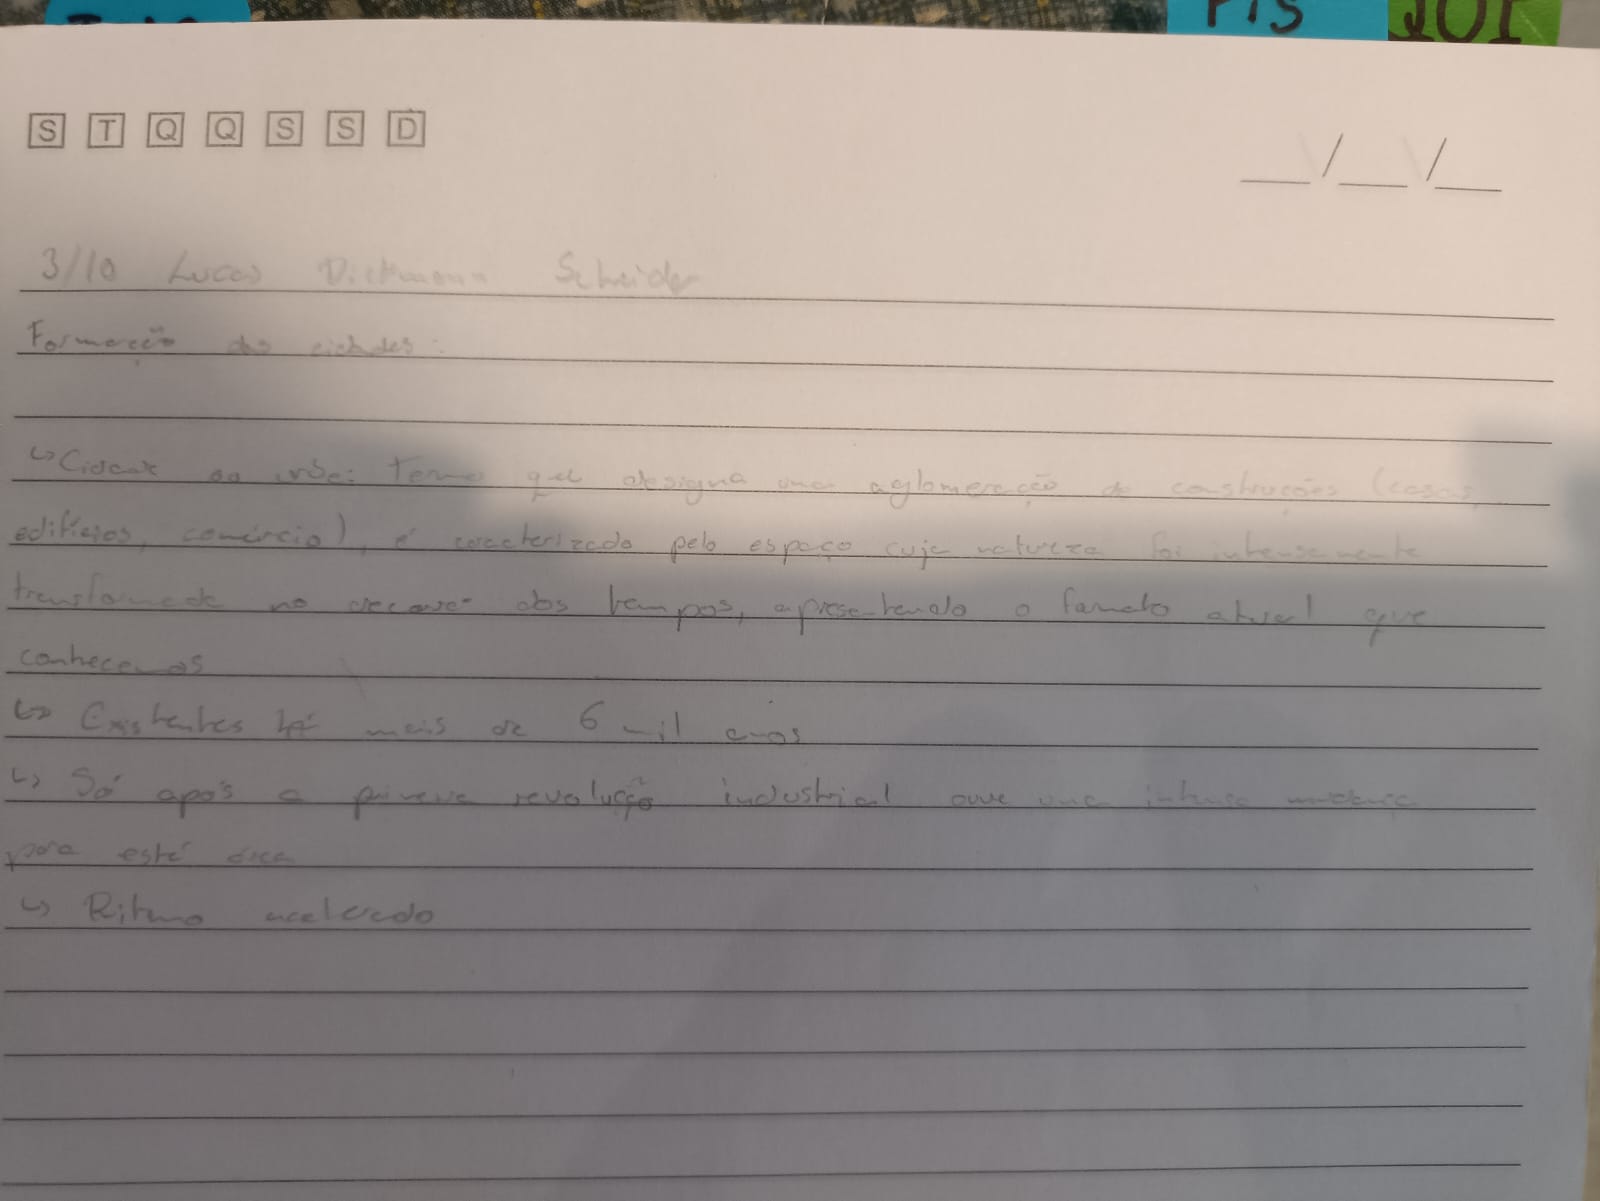 FIS QUI
S T Q Q S S D
__/__/__
3/10 Lucas Dickmann Scheider
Formação das cidades:
↳ Cidade ou urbe: termo que designa uma aglomeração de construções (casas,
edifícios, comércio), é caracterizado pelo espaço cuja natureza foi intensamente
transformada no decorrer dos tempos, apresentando o formato atual que
conhecemos
↳ Existentes há mais de 6 mil anos
↳ Só após a primeira revolução industrial ouve uma intensa mudança
para está área
↳ Ritmo acelerado